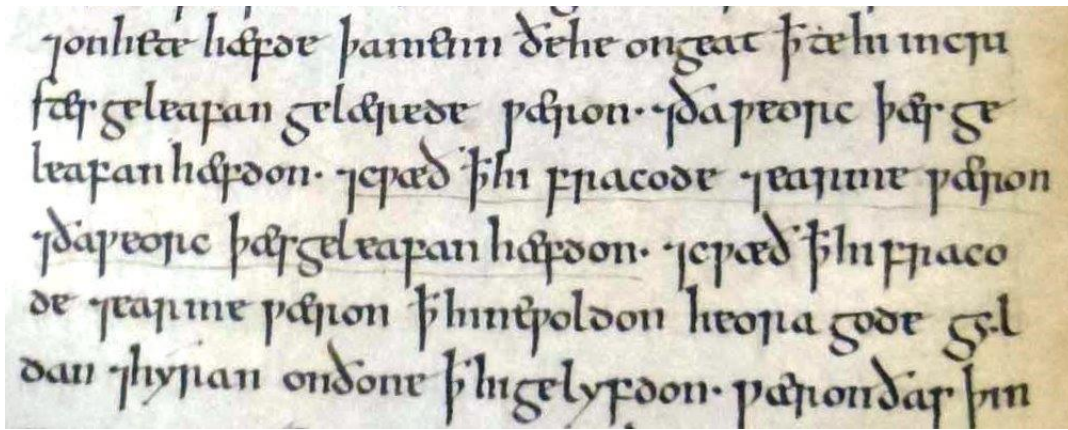 ⁊onhete hæfde þamenn ðehe ongeat ꝥte hi incri
stes geleafan gelærede wæron· ⁊ðaweorc þæs ge
leafan hæfdon· ⁊cwæð ꝥhi fracode ⁊earme wæron
⁊ðaweorc þæsgeleafan hæfdon· ⁊cwæð ꝥhi fraco
de ⁊earme wæron ꝥhinewoldon heora gode gyl
dan ⁊hyran onðone ꝥhigelyfdon· wæronðas þin